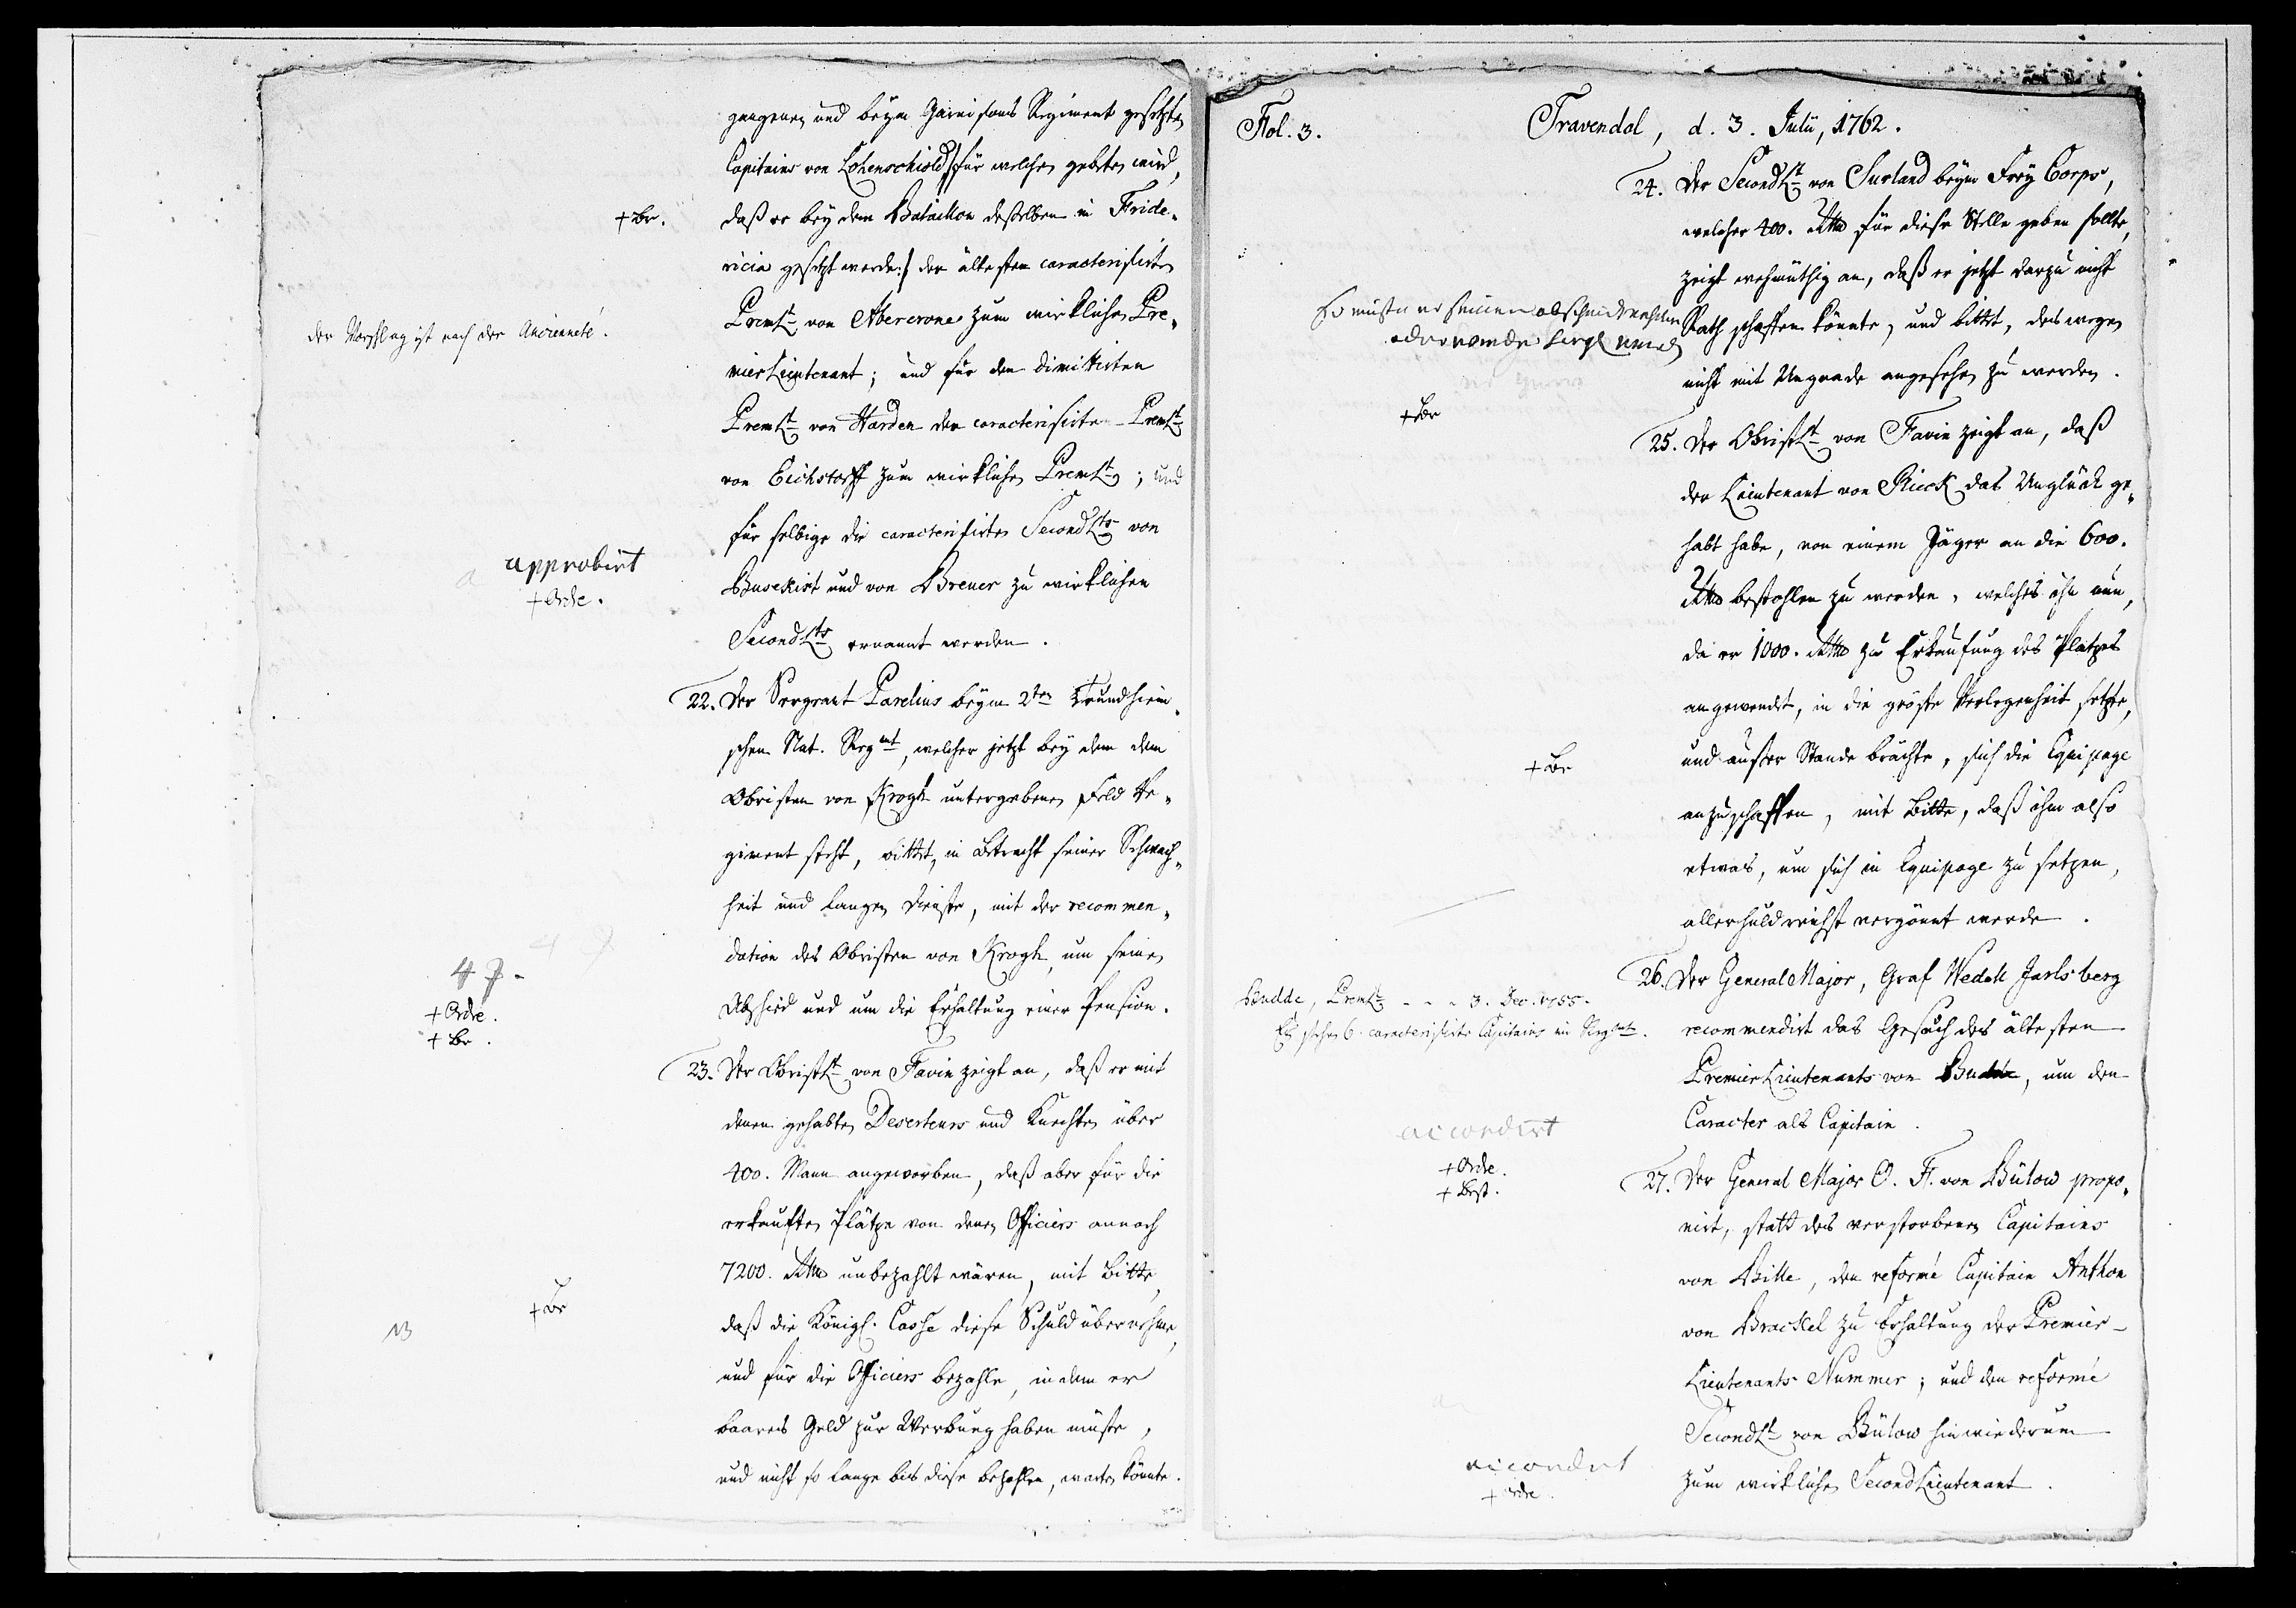 gangenen und beym Garnisons Regiment gesetzten
Capitains von Lohenschiold /: für welchen gebeten wird,
+ Br.
daß er bey dem Bataillon desselben in Fride„
ricia gesetzt werde :/ der älteste caracterisirte
PremLt von Abercrone zum wirklichen Pre„
der Vorschlag ist nach der Ancienneté.
mierLieutenant; und für den dimittirten
PremLt von Harden der caracterisirte PremLt
von Eichstorff zum wirklichen PremLt; und
für selbige die caracterisirten SecondLts von
approbirt
+ Ordre.
Busekist und von Breuer zu wirklichen
SecondLts ernannt werden.
22. Der Sergeant Parelius beym 2ten Trundheim„
schen Nat. Regmt, welcher jetzt bey dem dem
Obristen von Krogh untergebenen Feld Re„
giment steht, bittet, in Betracht seiner Schwach„
heit und langen Dienste, mit der recommen„
dation des Obristen von Krogh, um seinen
Abschied und um die Erhaltung einer Pension.
+ Ordre.
+ Br.
23. Der ObristLt von Favin zeigt an, daß er mit
denen gehabten Deserteurs und Knechten über
400. Mann angeworben, daß aber für die
erkauften Plätze von denen Officiers annoch
7200. Rthlr unbezahlt wären, mit Bitte,
+ Br
NB
daß die Königl. Casse diese Schuld übernehme,
und für die Officiers bezahle, indem er
baares Geld zur Werbung haben müste,
und nicht so lange bis diese bezahlen, warten könnte.
Fol. 3.
Travendal, d. 3. Julii, 1762.
24. Der SecondLt von Surland beym Frey Corps,
welcher 400. Rthlr für diese Stelle geben sollte,
zeigt wehmüthig an, daß er jetzt darzu nicht
So muste er seinen abscheidt nehmen
oder
Rath schaffen könnte, und bittet, deswegen
nicht mit Ungnade angesehen zu werden.
+ Br
25. Der ObristLt von Favin zeigt an, daß
der Lieutenant von Rieck das Unglück ge„
habt habe, von einem Jäger an die 600.
Rthlr bestohlen zu werden, welches ihn nun,
da er 1000. Rthlr zu Erkaufung des Platzes
angewendet, in die größte Verlegenheit setzte,
+ Br
und außer Stande brächte, sich die Equipage
anzuschaffen, mit Bitte, daß ihm also
etwas, um sich in Equipage zu setzen,
allerhuldreichst vergönnt werde.
26. Der General Major, Graf Wedell Jarlsberg
Budde, PremLt - - - 3. Dec. 1755.
Es stehen 6. caracterisirte Capitains im Regmt.
recommendirt das Gesuch des ältesten
PremierLieutenants von Budde, um den
Caracter als Capitain.
accordirt
+ Ordre.
+ Best.
27. Der General Major O. F. von Bülow propo„
nirt, statt des verstorbenen Capitains
von Bille, den reformé Capitain Anthon
von Brackel zu Erhaltung der Premier-
Lieutenants Nummer; und den reformé
SecondLt von Bülow hinwiederum
accordirt
+ Ordre.
zum wirklichen SecondLieutenant.